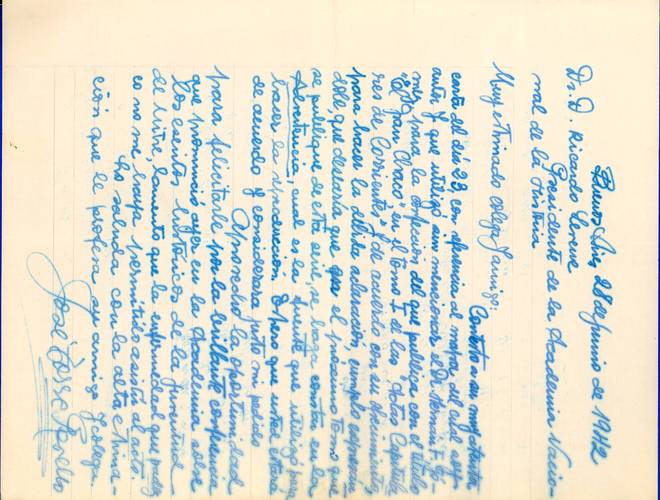 Buenos Aires, 28 de junio de 1942
Dr. D. Ricardo Levene
Presidente de la Academia Nacio-
nal de la Historia
Muy estimado colega y amigo:
Contesto a su muy atenta
carta del día 23, con referencia al mapa del cual soy
autor y que utilizó sin mencionar
para la del que publica con el título
"El gran Chaco" en el tomo I de las "Actas Capitula-
res de Corrientes", y de acuerdo con su ofrecimiento
para hacer la debida aclaración, cumplo expresán-
dole, que desearía que en el próximo tomo que
se publique de esta serie, se haga constar en la
Advertencia, cual es la fuente que utilizó para
hacer la reproducción. Espero que usted estará
de acuerdo y considerará justo mi pedido
Aprovecho la oportunidad
para felicitarle por la brillante conferencia
que pronunció ayer en la Academia sobre
Los escritos históricos de la juventud
de Mitre, lamento que la enfermedad que padez-
co no me haya permitido asistir al acto.
Lo saluda con la alta estima-
ción que le profesa su amigo y colega.
José Torre Revello